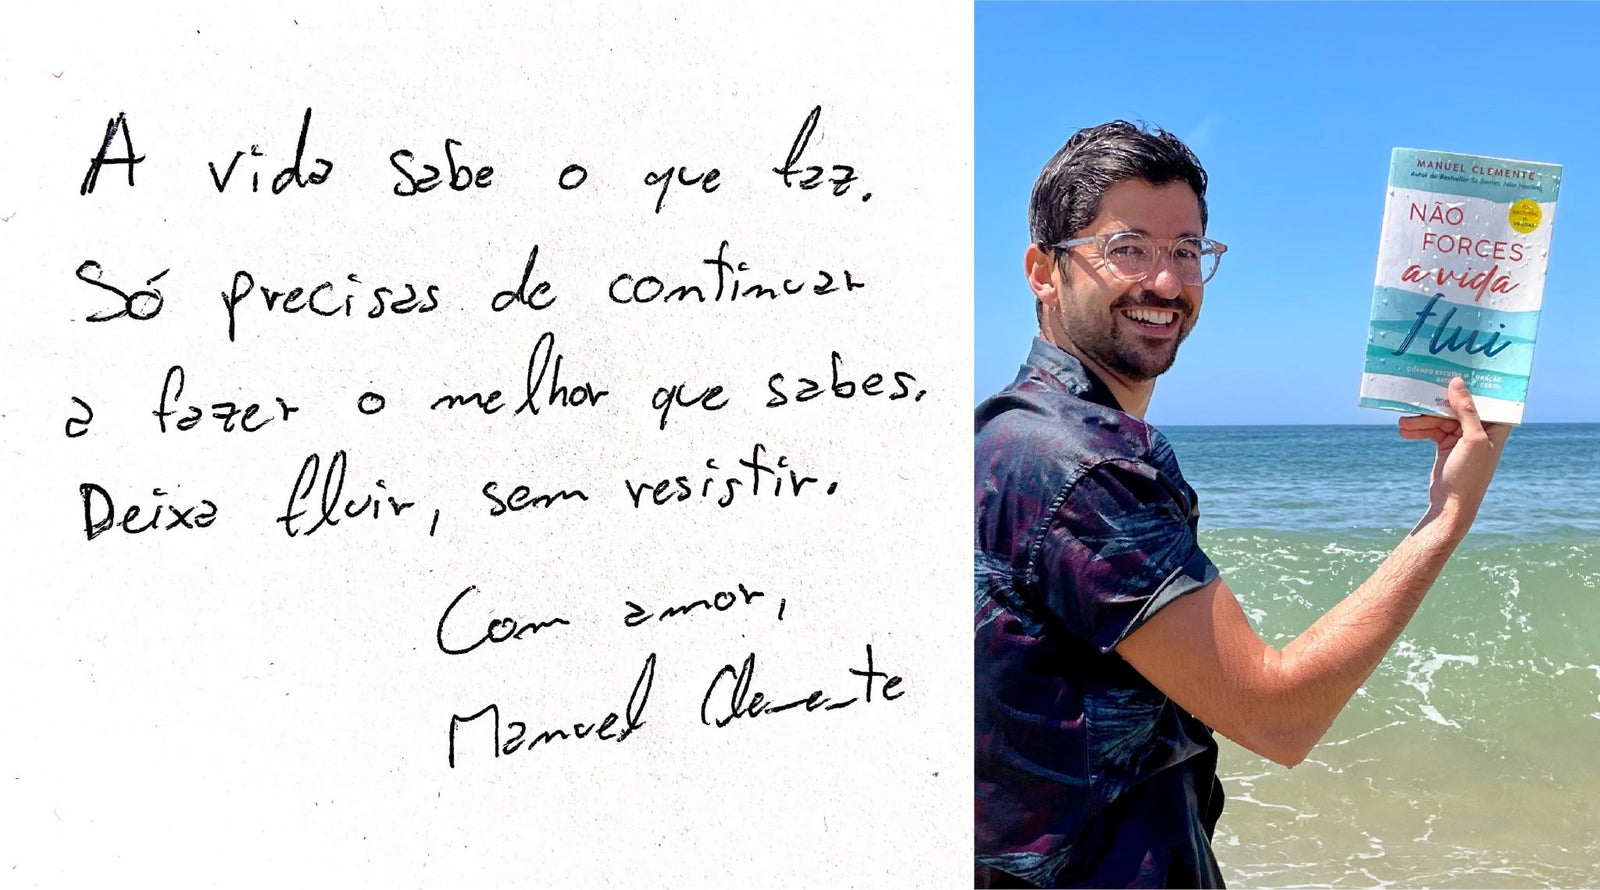 A vida sabe o que faz.
Só precisas de continuar
a fazer o melhor que sabes.
Deixa fluir, sem resistir.
Com amor,
Manuel Clemente
MANUEL CLEMENTE
Autor do Bestseller
NÃO
FORCES
a vida
flui
QUANDO ESCUTAS O CORAÇÃO,